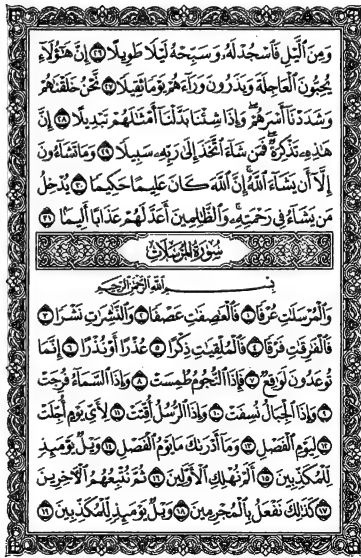 وَمِنَ ٱلَّيْلِ فَٱسْجُدْ لَهُۥ وَسَبِّحْهُ لَيْلًا طَوِيلًا ۝٢٦ إِنَّ هَٰٓؤُلَآءِ
يُحِبُّونَ ٱلْعَاجِلَةَ وَيَذَرُونَ وَرَآءَهُمْ يَوْمًا ثَقِيلًا ۝٢٧ نَّحْنُ خَلَقْنَٰهُمْ
وَشَدَدْنَآ أَسْرَهُمْ ۖ وَإِذَا شِئْنَا بَدَّلْنَآ أَمْثَٰلَهُمْ تَبْدِيلًا ۝٢٨ إِنَّ
هَٰذِهِۦ تَذْكِرَةٌ ۖ فَمَن شَآءَ ٱتَّخَذَ إِلَىٰ رَبِّهِۦ سَبِيلًا ۝٢٩ وَمَا تَشَآءُونَ
إِلَّآ أَن يَشَآءَ ٱللَّهُ ۚ إِنَّ ٱللَّهَ كَانَ عَلِيمًا حَكِيمًا ۝٣٠ يُدْخِلُ
مَن يَشَآءُ فِى رَحْمَتِهِۦ ۚ وَٱلظَّٰلِمِينَ أَعَدَّ لَهُمْ عَذَابًا أَلِيمًۢا ۝٣١
سُورَةُ الْمُرْسَلَاتِ
بِسْمِ ٱللَّهِ ٱلرَّحْمَٰنِ ٱلرَّحِيمِ
وَٱلْمُرْسَلَٰتِ عُرْفًا ۝١ فَٱلْعَٰصِفَٰتِ عَصْفًا ۝٢ وَٱلنَّٰشِرَٰتِ نَشْرًا ۝٣
فَٱلْفَٰرِقَٰتِ فَرْقًا ۝٤ فَٱلْمُلْقِيَٰتِ ذِكْرًا ۝٥ عُذْرًا أَوْ نُذْرًا ۝٦ إِنَّمَا
تُوعَدُونَ لَوَٰقِعٌ ۝٧ فَإِذَا ٱلنُّجُومُ طُمِسَتْ ۝٨ وَإِذَا ٱلسَّمَآءُ فُرِجَتْ
۝٩ وَإِذَا ٱلْجِبَالُ نُسِفَتْ ۝١٠ وَإِذَا ٱلرُّسُلُ أُقِّتَتْ ۝١١ لِأَىِّ يَوْمٍ أُجِّلَتْ
۝١٢ لِيَوْمِ ٱلْفَصْلِ ۝١٣ وَمَآ أَدْرَىٰكَ مَا يَوْمُ ٱلْفَصْلِ ۝١٤ وَيْلٌ يَوْمَئِذٍ
لِّلْمُكَذِّبِينَ ۝١٥ أَلَمْ نُهْلِكِ ٱلْأَوَّلِينَ ۝١٦ ثُمَّ نُتْبِعُهُمُ ٱلْءَاخِرِينَ
۝١٧ كَذَٰلِكَ نَفْعَلُ بِٱلْمُجْرِمِينَ ۝١٨ وَيْلٌ يَوْمَئِذٍ لِّلْمُكَذِّبِينَ ۝١٩